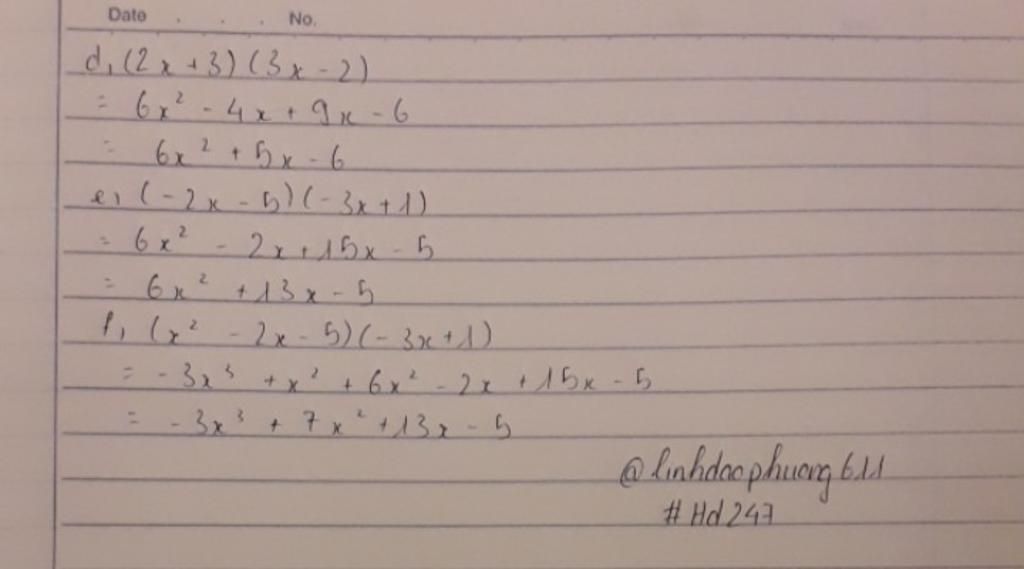 Date . . . No.
d, (2x + 3) (3x - 2)
= 6x² - 4x + 9x - 6
= 6x² + 5x - 6
e, (-2x - 5) (-3x + 1)
= 6x² - 2x + 15x - 5
= 6x² + 13x - 5
f, (x² - 2x - 5) (-3x + 1)
= -3x³ + x² + 6x² - 2x + 15x - 5
= -3x³ + 7x² + 13x - 5
@linhdaophuong611
#Hd247